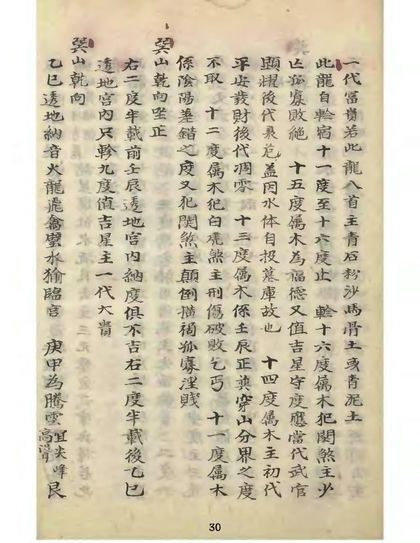 一代富貴若此龍入首主青石粉沙馬骨土或青泥土
此龍自軫宿十一度至十六度止　軫十六度属木犯関煞主少
亡孤寡敗絶　十五度属木為福德又值吉星守度應當代武官
顯耀後代衰危盖因水体自投墓庫故也　十四度属木主初代
平安發財後代凋零　十三度属木係壬辰正㢲穿山分界之度
不取　十二度属木犯白虎煞主刑傷破敗乞丐　十一度属木
係陰陽差錯之度又犯関煞主顛倒
孤寡淫賤
巽山乾向坐正
右二度半載前壬辰透地宮内納度俱不吉右二度半載後乙巳
透地宮内只軫九度值吉星主一代大貴
巽山乾向
乙巳透地納音火龍飛禽壁水㺄臨宮　庚甲為騰雲宜尖峰高聳艮
30